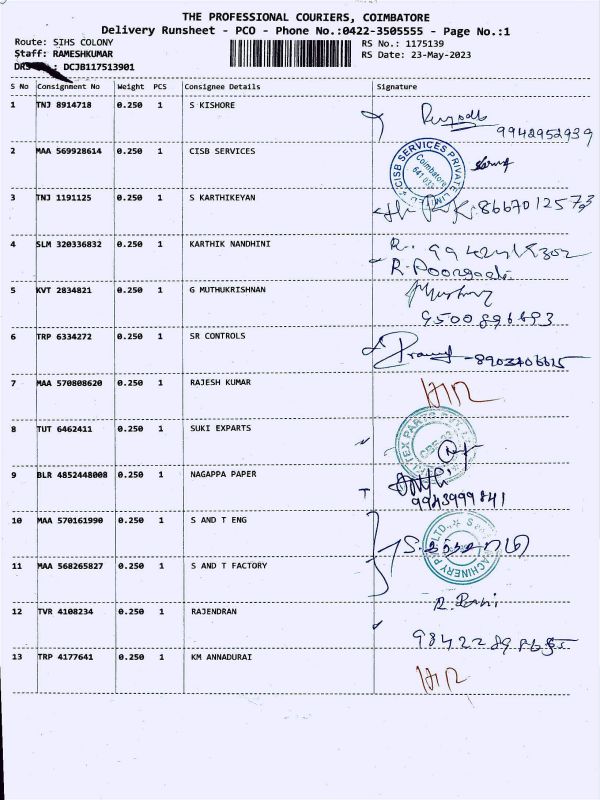 THE PROFESSIONAL COURIERS, COIMBATORE
Delivery Runsheet - PCO - Phone No.:0422-3505555 - Page No.:1
Route: SIHS COLONY RS No.: 1175139
Staff: RAMESHKUMAR RS Date: 23-May-2023
DRS : DCJB117513901
S No Consignment No Weight PCS Consignee Details Signature
1 TNJ 8914718 0.250 1 S KISHORE
9942952939
2 MAA 569928614 0.250 1 CISB SERVICES
CISB SERVICES PRIVATE LIMITED
Coimbatore
641 033
3 TNJ 1191125 0.250 1 S KARTHIKEYAN
8667012573
4 SLM 320336832 0.250 1 KARTHIK NANDHINI
5 KVT 2834821 0.250 1 G MUTHUKRISHNAN
9500896693
6 TRP 6334272 0.250 1 SR CONTROLS
7 MAA 570808620 0.250 1 RAJESH KUMAR
8 TUT 6462411 0.250 1 SUKI EXPARTS
9 BLR 4852448008 0.250 1 NAGAPPA PAPER
9943999841
10 MAA 570161990 0.250 1 S AND T ENG
11 MAA 568265827 0.250 1 S AND T FACTORY
MACHINERY
12 TVR 4108234 0.250 1 RAJENDRAN
13 TRP 4177641 0.250 1 KM ANNADURAI